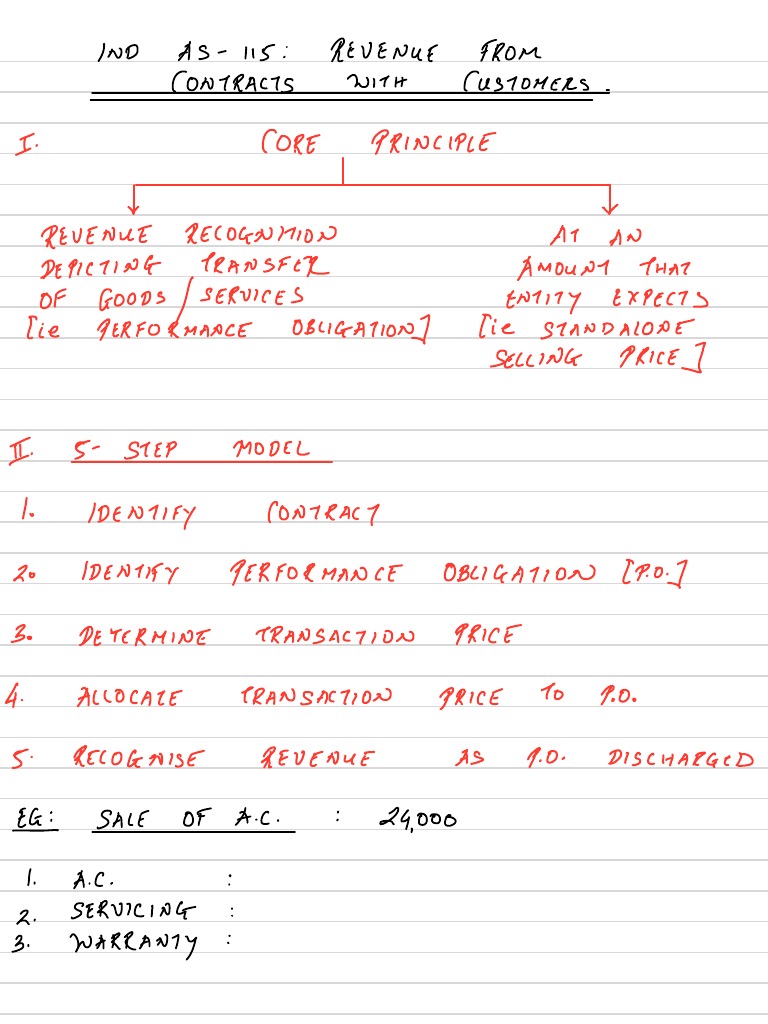 IND AS-115: REVENUE FROM
CONTRACTS WITH CUSTOMERS.
I. CORE PRINCIPLE
REVENUE RECOGNITION
DEPICTING TRANSFER
OF GOODS / SERVICES
[ie PERFORMANCE OBLIGATION]
AT AN
AMOUNT THAT
ENTITY EXPECTS
[ie STANDALONE
SELLING PRICE]
II. 5- STEP MODEL
1. IDENTIFY CONTRACT
2. IDENTIFY PERFORMANCE OBLIGATION [P.O.]
3. DETERMINE TRANSACTION PRICE
4. ALLOCATE TRANSACTION PRICE TO P.O.
5. RECOGNISE REVENUE AS P.O. DISCHARGED
EG: SALE OF A.C. : 24,000
1. A.C. :
2. SERVICING :
3. WARRANTY :